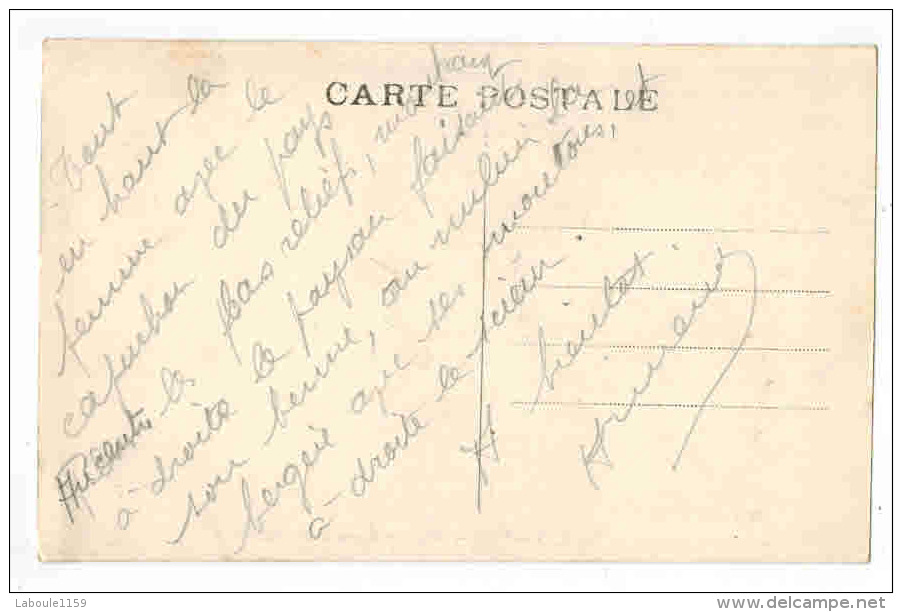 CARTE POSTALE
Tout
en haut la
femme avec le
capuchon du pays
Au centre les bas reliefs, montrant
à droite le paysan faisant
son beurre, au milieu la
bergère avec ses moutons,
à droite le
A bientôt
Laboule1159
www.delcampe.net